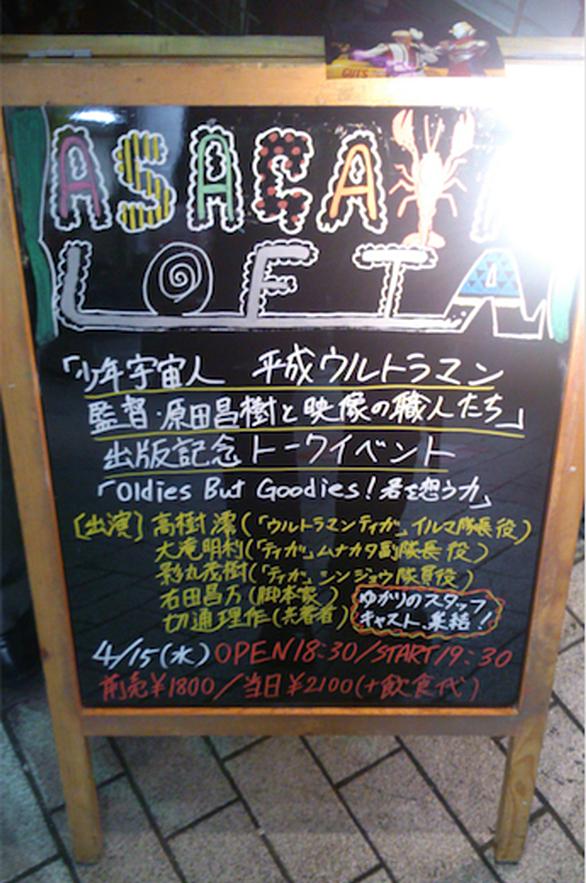 GUTS
ASAGAYA
LOFT A
「少年宇宙人 平成ウルトラマン
監督・原田昌樹と映像の職人たち」
出版記念トークイベント
「Oldies But Goodies！君を想う力」
[出演] 高樹澪(「ウルトラマンティガ」イルマ隊長役)
大滝明利(「ティガ」ムナカタ副隊長役)
影丸茂樹(「ティガ」シンジョウ隊員役)
右田昌万(脚本家)
切通理作(共著者)
ゆかりのスタッフ
キャスト、集結！
4/15(水) OPEN 18:30/START 19:30
前売¥1800/当日¥2100(+飲食代)